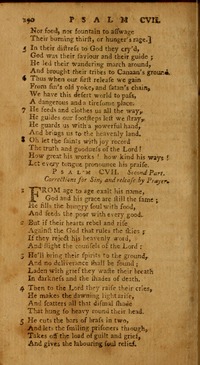 290 PSALM CVII.
Nor food, nor fountain to asswage
Their burning thirst, or hunger's rage.]
5 In their distress to God they cry'd,
God was their saviour and their guide;
He led their wandering march around,
And brought their tribes to Canaan's ground.
6 Thus when our first release we gain
From sin's old yoke, and satan's chain,
We have this desert world to pass,
A dangerous and a tiresome place.
7 He feeds and clothes us all the way,
He guides our footsteps lest we stray,
He guards us with a powerful hand,
And brings us to the heavenly land.
8 Oh let the saints with joy record
The truth and goodness of the Lord!
How great his works! how kind his ways!
Let every tongue pronounce his praise.
PSALM CVII. Second Part.
Correction for Sin, and release by Prayer.
FROM age to age exalt his name,
God and his grace are still the same;
He fills the hungry soul with food,
And feeds the poor with every good.
2 But if their hearts rebel and rise
Against the God that rules the skies;
If they reject his heavenly word,
And slight the counsels of the Lord:
3 He'll bring their spirits to the ground,
And no deliverance shall be found;
Laden with grief they waste their breath
In darkness and the shades of death.
4 Then to the Lord they raise their cries,
He makes the dawning light arise,
And scatters all that dismal shade
That hung so heavy round their head.
5 He cuts the bars of brass in two,
And lets the smiling prisoners through,
Takes off the load of guilt and grief,
And gives the labouring soul relief.